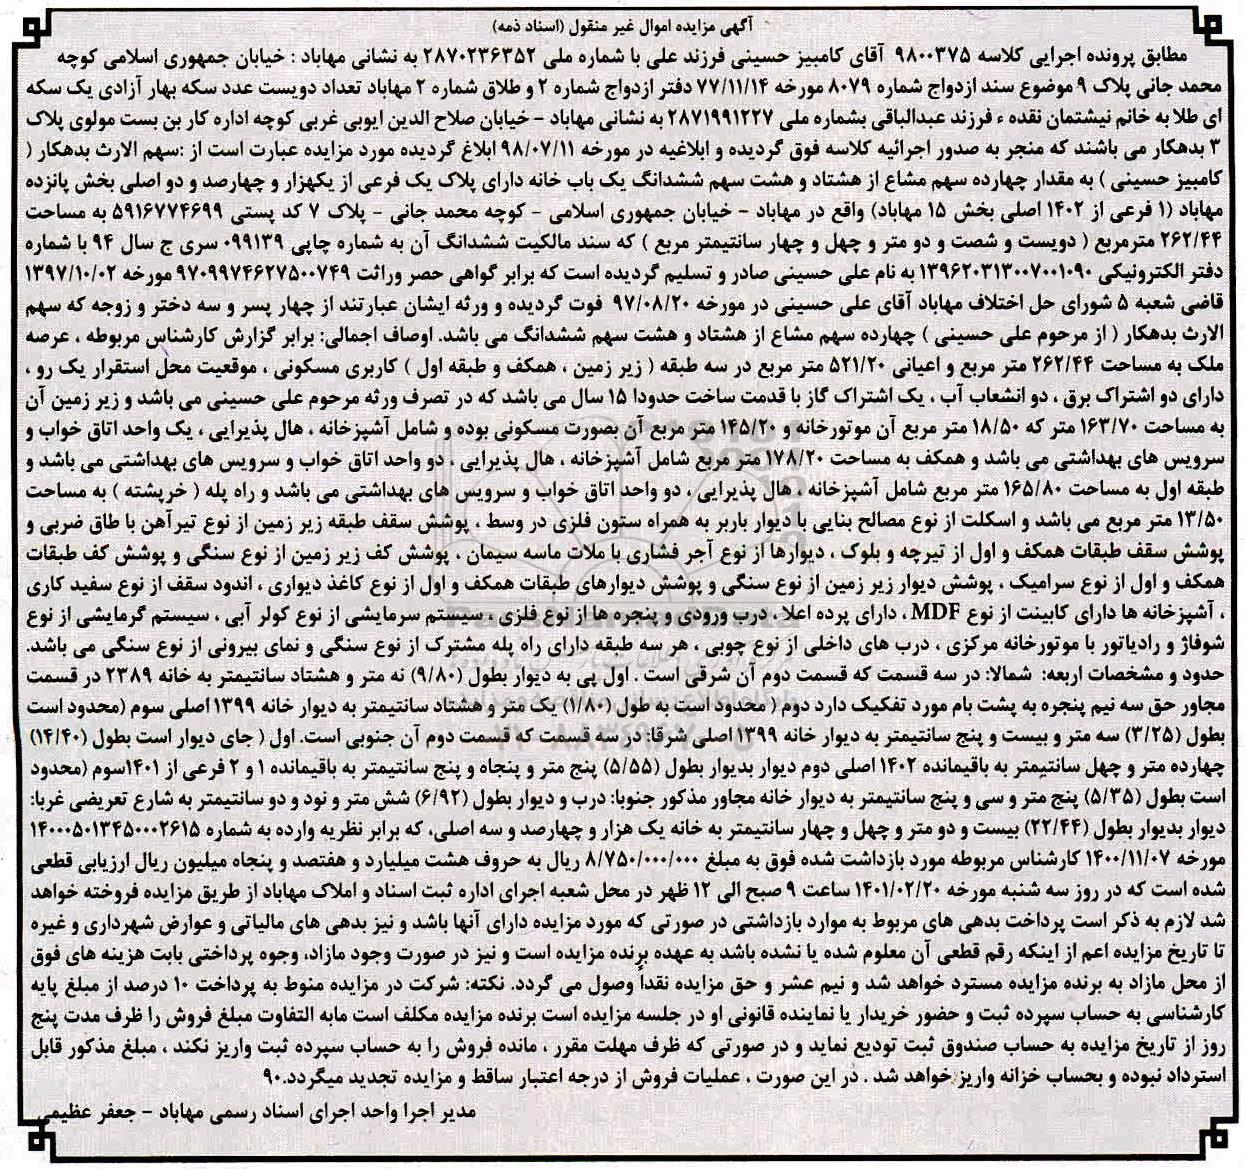 آگهی مزایده اموال غیر منقول (اسناد ذمه)
مطابق پرونده اجرایی کلاسه ۹۸۰۰۳۷۵ آقای کامبیز حسینی فرزند علی با شماره ملی ۲۸۷۰۲۳۶۳۵۲ به نشانی مهاباد : خیابان جمهوری اسلامی کوچه
محمد جانی پلاک ۹ موضوع سند ازدواج شماره ۸۰۷۹ مورخه ۷۷/۱۱/۱۴ دفتر ازدواج شماره ۲ و طلاق شماره ۲ مهاباد تعداد دویست عدد سکه بهار آزادی یک سکه
ای طلا به خانم نیشتمان نقده ء فرزند عبدالباقی بشماره ملی ۲۸۷۱۹۹۱۲۲۷ به نشانی مهاباد – خیابان صلاح الدین ایوبی غربی کوچه اداره کار بن بست مولوی پلاک
۳ بدهکار می باشند که منجر به صدور اجرائیه کلاسه فوق گردیده و ابلاغیه در مورخه ۹۸/۰۷/۱۱ ابلاغ گردیده مورد مزایده عبارت است از :سهم الارث بدهکار (
کامبیز حسینی ) به مقدار چهارده سهم مشاع از هشتاد و هشت سهم ششدانگ یک باب خانه دارای پلاک یک فرعی از یکهزار و چهارصد و دو اصلی بخش پانزده
مهاباد (۱ فرعی از ۱۴۰۲ اصلی بخش ۱۵ مهاباد) واقع در مهاباد – خیابان جمهوری اسلامی – کوچه محمد جانی – پلاک ۷ کد پستی ۵۹۱۶۷۷۴۶۹۹ به مساحت
۲۶۲/۴۴ مترمربع ( دویست و شصت و دو متر و چهل و چهار سانتیمتر مربع ) که سند مالکیت ششدانگ آن به شماره چاپی ۰۹۹۱۳۹ سری ج سال ۹۴ با شماره
دفتر الکترونیکی ۱۳۹۶۲۰۳۱۳۰۰۷۰۰۱۰۹۰ به نام علی حسینی صادر و تسلیم گردیده است که برابر گواهی حصر وراثت ۹۷۰۹۹۷۴۶۲۷۵۰۰۷۴۹ مورخه ۱۳۹۷/۱۰/۰۲
قاضی شعبه ۵ شورای حل اختلاف مهاباد آقای علی حسینی در مورخه ۹۷/۰۸/۲۰ فوت گردیده و ورثه ایشان عبارتند از چهار پسر و سه دختر و زوجه که سهم
الارث بدهکار ( از مرحوم علی حسینی ) چهارده سهم مشاع از هشتاد و هشت سهم ششدانگ می باشد. اوصاف اجمالی: برابر گزارش کارشناس مربوطه ، عرصه
ملک به مساحت ۲۶۲/۴۴ متر مربع و اعیانی ۵۲۱/۲۰ متر مربع در سه طبقه ( زیر زمین ، همکف و طبقه اول ) کاربری مسکونی ، موقعیت محل استقرار یک رو ،
دارای دو اشتراک برق ، دو انشعاب آب ، یک اشتراک گاز با قدمت ساخت حدودا ۱۵ سال می باشد که در تصرف ورثه مرحوم علی حسینی می باشد و زیر زمین آن
به مساحت ۱۶۳/۷۰ متر که ۱۸/۵۰ متر مربع آن موتورخانه و ۱۴۵/۲۰ متر مربع آن بصورت مسکونی بوده و شامل آشپزخانه ، هال پذیرایی ، یک واحد اتاق خواب و
سرویس های بهداشتی می باشد و همکف به مساحت ۱۷۸/۲۰ متر مربع شامل آشپزخانه ، هال پذیرایی ، دو واحد اتاق خواب و سرویس های بهداشتی می باشد و
طبقه اول به مساحت ۱۶۵/۸۰ متر مربع شامل آشپزخانه ، هال پذیرایی ، دو واحد اتاق خواب و سرویس های بهداشتی می باشد و راه پله ( خرپشته ) به مساحت
۱۳/۵۰ متر مربع می باشد و اسکلت از نوع مصالح بنایی با دیوار باربر به همراه ستون فلزی در وسط ، پوشش سقف طبقه زیر زمین از نوع تیرآهن با طاق ضربی و
پوشش سقف طبقات همکف و اول از تیرچه و بلوک ، دیوارها از نوع آجر فشاری با ملات ماسه سیمان ، پوشش کف زیر زمین از نوع سنگی و پوشش کف طبقات
همکف و اول از نوع سرامیک ، پوشش دیوار زیر زمین از نوع سنگی و پوشش دیوارهای طبقات همکف و اول از نوع کاغذ دیواری ، اندود سقف از نوع سفید کاری
، آشپزخانه ها دارای کابینت از نوع MDF ، دارای پرده اعلا ، درب ورودی و پنجره ها از نوع فلزی ، سیستم سرمایشی از نوع کولر آبی ، سیستم گرمایشی از نوع
شوفاژ و رادیاتور با موتورخانه مرکزی ، درب های داخلی از نوع چوبی ، هر سه طبقه دارای راه پله مشترک از نوع سنگی و نمای بیرونی از نوع سنگی می باشد.
حدود و مشخصات اربعه: شمالا: در سه قسمت که قسمت دوم آن شرقی است . اول پی به دیوار بطول (۹/۸۰) نه متر و هشتاد سانتیمتر به خانه ۲۳۸۹ در قسمت
مجاور حق سه نیم پنجره به پشت بام مورد تفکیک دارد دوم ( محدود است به طول (۱/۸۰) یک متر و هشتاد سانتیمتر به دیوار خانه ۱۳۹۹ اصلی سوم (محدود است
بطول (۳/۲۵) سه متر و بیست و پنج سانتیمتر به دیوار خانه ۱۳۹۹ اصلی شرقا: در سه قسمت که قسمت دوم آن جنوبی است. اول ( جای دیوار است بطول (۱۴/۴۰)
چهارده متر و چهل سانتیمتر به باقیمانده ۱۴۰۲ اصلی دوم دیوار بدیوار بطول (۵/۵۵) پنج متر و پنجاه و پنج سانتیمتر به باقیمانده ۱ و ۲ فرعی از ۱۴۰۱سوم (محدود
است بطول (۵/۳۵) پنج متر و سی و پنج سانتیمتر به دیوار خانه مجاور مذکور جنوبا: درب و دیوار بطول (۶/۹۲) شش متر و نود و دو سانتیمتر به شارع تعریضی غربا:
دیوار بدیوار بطول (۲۲/۴۴) بیست و دو متر و چهل و چهار سانتیمتر به خانه یک هزار و چهارصد و سه اصلی، که برابر نظریه وارده به شماره ۱۴۰۰۰۵۰۱۳۴۵۰۰۰۲۶۱۵
مورخه ۱۴۰۰/۱۱/۰۷ کارشناس مربوطه مورد بازداشت شده فوق به مبلغ ۸/۷۵۰/۰۰۰/۰۰۰ ریال به حروف هشت میلیارد و هفتصد و پنجاه میلیون ریال ارزیابی قطعی
شده است که در روز سه شنبه مورخه ۱۴۰۱/۰۲/۲۰ ساعت ۹ صبح الی ۱۲ ظهر در محل شعبه اجرای اداره ثبت اسناد و املاک مهاباد از طریق مزایده فروخته خواهد
شد لازم به ذکر است پرداخت بدهی های مربوط به موارد بازداشتی در صورتی که مورد مزایده دارای آنها باشد و نیز بدهی های مالیاتی و عوارض شهرداری و غیره
تا تاریخ مزایده اعم از اینکه رقم قطعی آن معلوم شده یا نشده باشد به عهده برنده مزایده است و نیز در صورت وجود مازاد، وجوه پرداختی بابت هزینه های فوق
از محل مازاد به برنده مزایده مسترد خواهد شد و نیم عشر و حق مزایده نقداً وصول می گردد. نکته: شرکت در مزایده منوط به پرداخت ۱۰ درصد از مبلغ پایه
کارشناسی به حساب سپرده ثبت و حضور خریدار یا نماینده قانونی او در جلسه مزایده است برنده مزایده مکلف است مابه التفاوت مبلغ فروش را ظرف مدت پنج
روز از تاریخ مزایده به حساب صندوق ثبت تودیع نماید و در صورتی که ظرف مهلت مقرر ، مانده فروش را به حساب سپرده ثبت واریز نکند ، مبلغ مذکور قابل
استرداد نبوده و بحساب خزانه واریز خواهد شد . در این صورت ، عملیات فروش از درجه اعتبار ساقط و مزایده تجدید میگردد.۹۰
مدیر اجرا واحد اجرای اسناد رسمی مهاباد – جعفر عظیمی